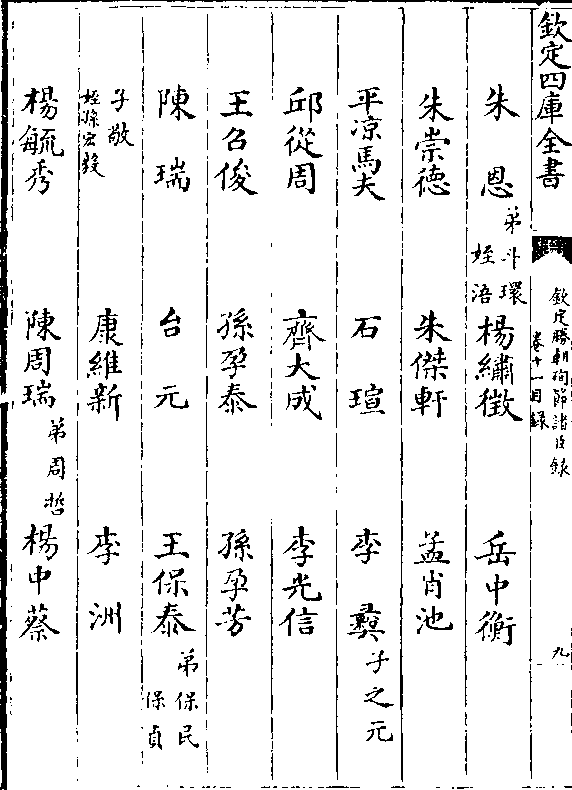 欽定四庫全書
欽定勝朝殉節諸臣錄
卷十一目錄
九
朱恩 弟斗環 姪浯 楊繡徵 岳中衡
朱崇德 朱傑軒 孟肖池
平涼馬夫 石瑄 李彝 子之元
邱從周 齊大成 李光信
王名俊 孫孕泰 孫孕芳
陳瑞 台元 王保泰 弟保民 保貞
子敬 姪縣宏毅 康維新 李洲
楊毓秀 陳周瑞 弟周哲 楊中蔡